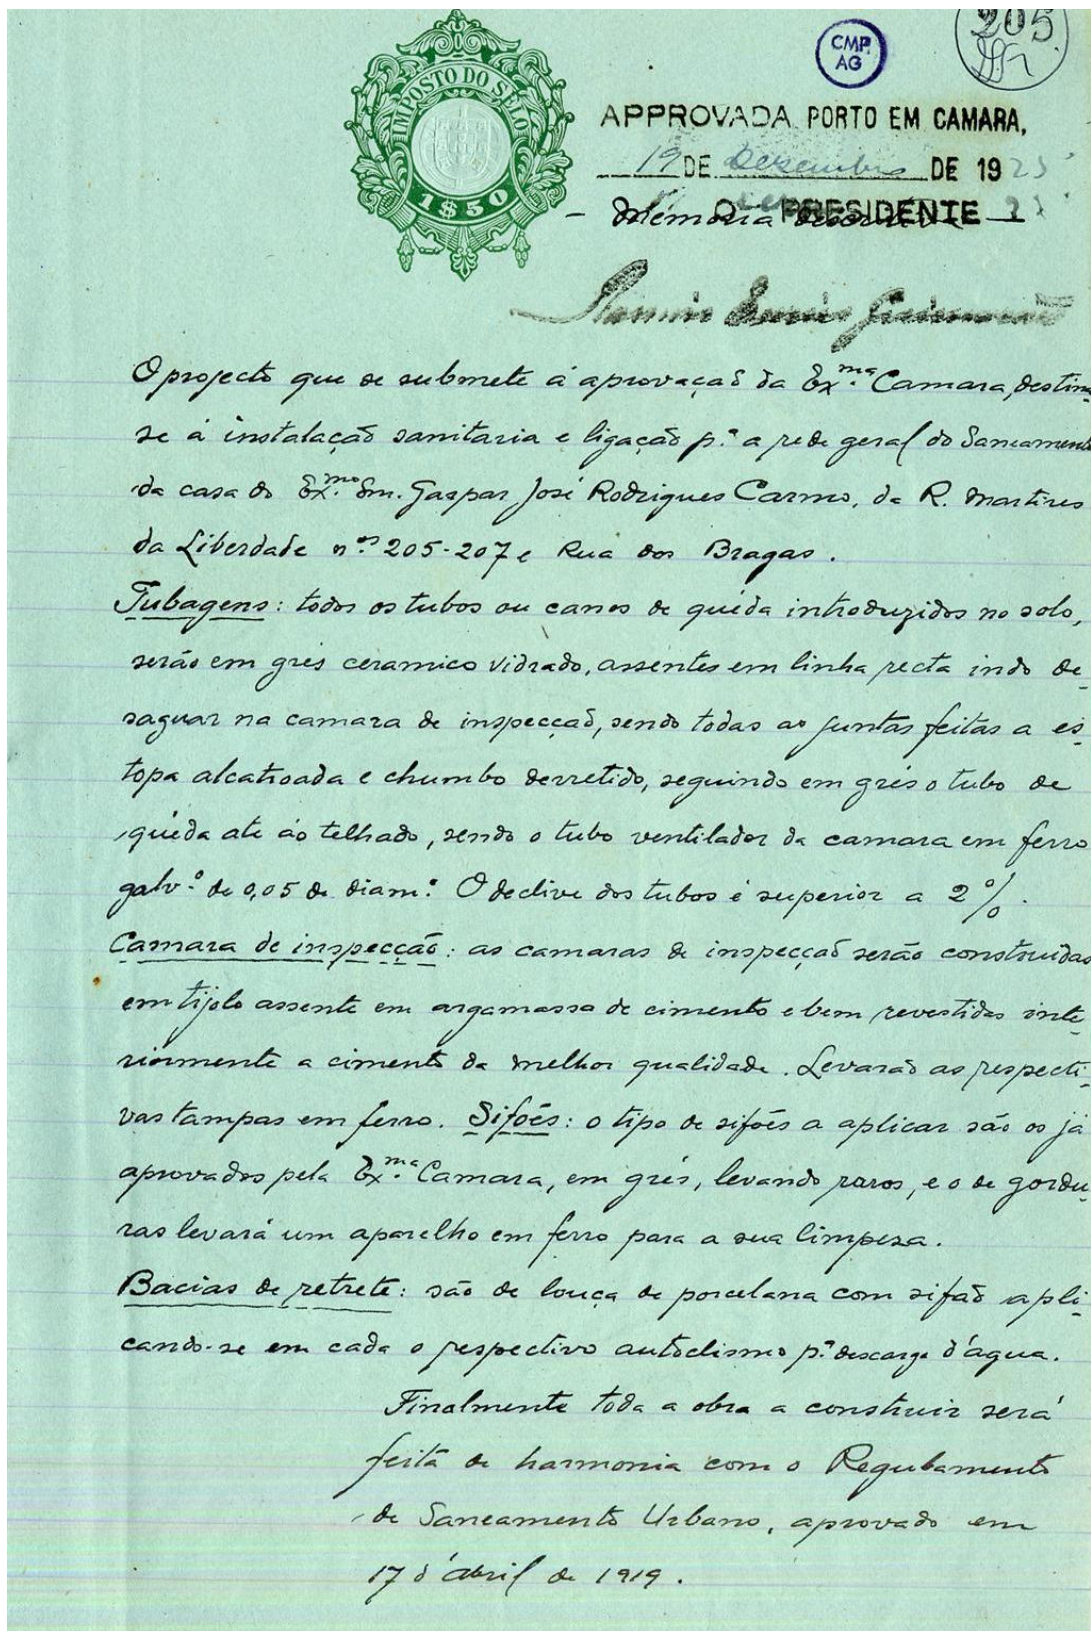 205
CMP
AG
IMPOSTO DO SELO
1$50
APPROVADA. PORTO EM CAMARA,
19 DE Dezembro DE 1925
O PRESIDENTE
- Memoria
O projecto que se submete á aprovação da Ex.ma Camara, destina-
se á instalação sanitaria e ligação p.a a rede geral do Saneamento
da casa do Ex.mo Snr. Gaspar José Rodrigues Carmo, da R. Martires
da Liberdade n.os 205-207 e Rua dos Bragas.
Tubagens: todos os tubos ou canos de quéda introduzidos no solo,
serão em grés ceramico vidrado, assentes em linha recta indo de-
saguar na camara de inspecção, sendo todas as juntas feitas a es-
topa alcatroada e chumbo derretido, seguindo em grés o tubo de
quéda até ao telhado, sendo o tubo ventilador da camara em ferro
galv.o de 0,05 de diam.o O declive dos tubos é superior a 2%.
Camara de inspecção: as camaras de inspecção serão construidas
em tijolo assente em argamassa de cimento e bem revestidas inte-
riormente a cimento da melhor qualidade. Levarão as respecti-
vas tampas em ferro. Sifões: o tipo de sifões a aplicar são os já
aprovados pela Ex.ma Camara, em grés, levando raros, e o de gordu-
ras levará um aparelho em ferro para a sua limpesa.
Bacias de retrete: são de louça de porcelana com sifão apli-
cando-se em cada o respectivo autoclismo p.a descarga d'água.
Finalmente toda a obra a construir será
feita de harmonia com o Regulamento
de Saneamento Urbano, aprovado em
17 d'Abril de 1919.